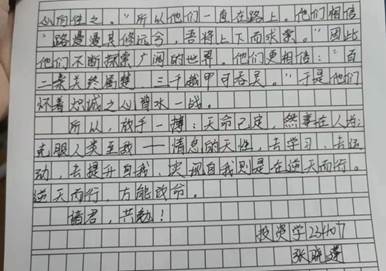 心向往之。"所以他们一直在路上。他们相信
"路漫漫其修远兮，吾将上下而求索。"因此
他们不断探索广阔的世界。他们更相信："百
二秦关终属楚，三千越甲可吞吴。"于是他们
怀着炽诚之心背水一战。
所以，放手一搏：天命已定，然事在人为；
克服人类至我——惰怠的天性，去学习，去运
动，去提升自我，实现自我则是在逆天而行。
逆天而行，方能改命。
诸君，共勉！
投资学23407
张晓